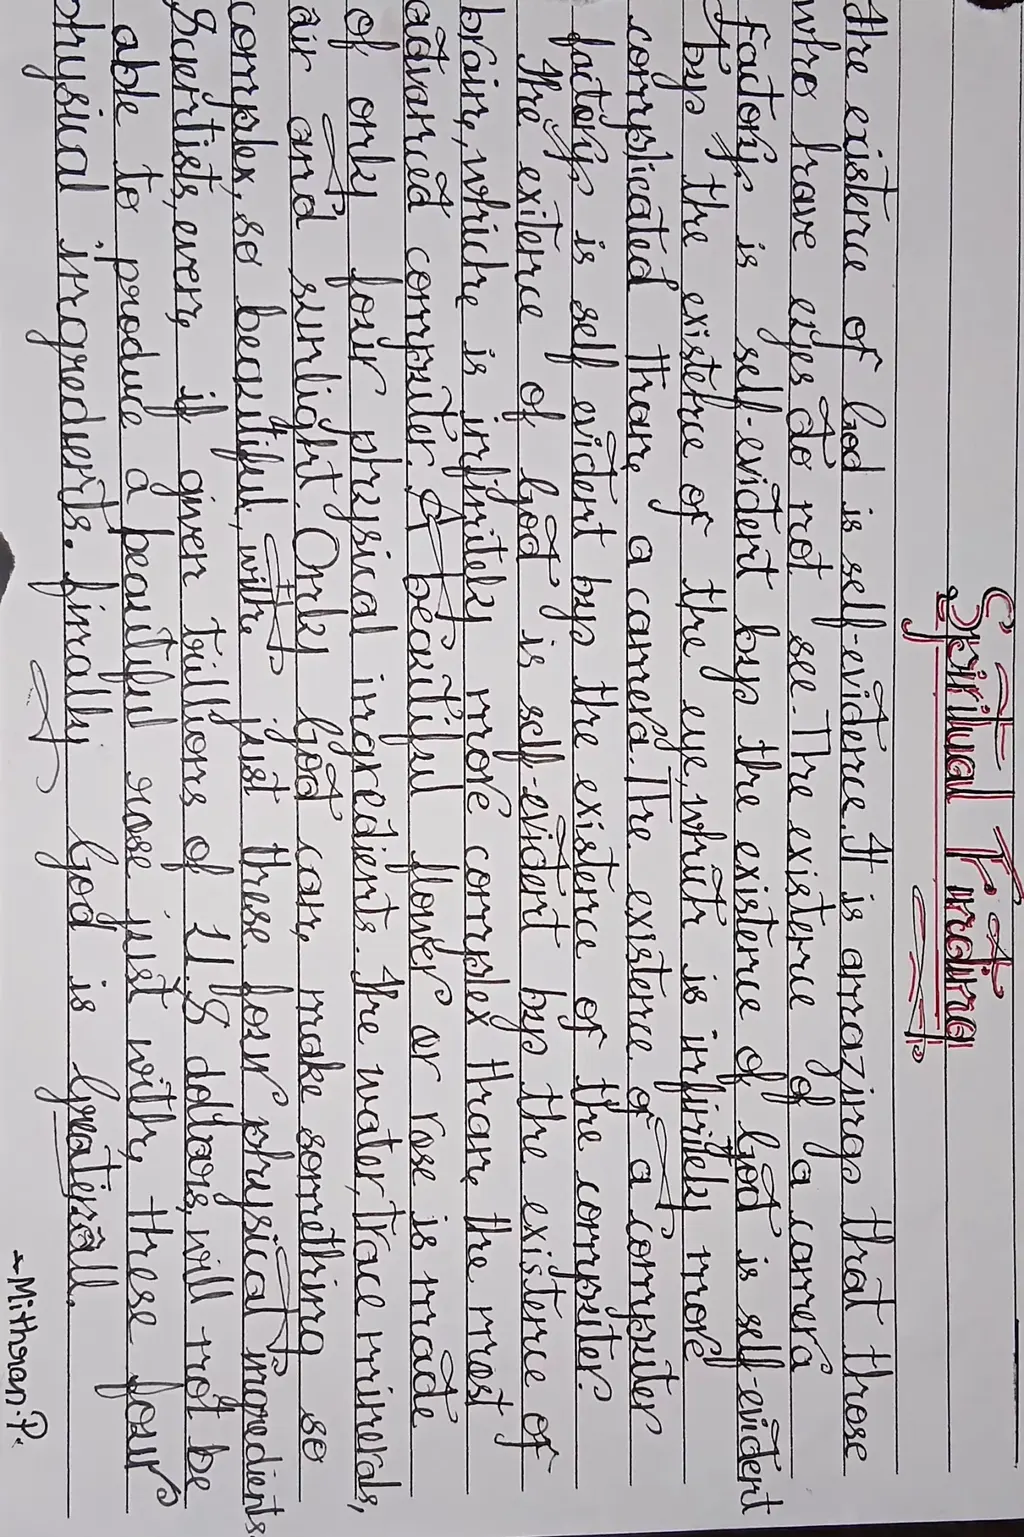 Spiritual Trading
the existence of God is self-evidence. It is amazing that those
who have eyes do not see. The existence of a camera
factory is self-evident by the existence of God is self-evident
by the existence of the eye, which is infinitely more
complicated than a camera. The existence of a computer
factory is self evident by the existence of the computer.
The exitence of God is self-evident by the existence of
brain, which is infinitely more complex than the most
advanced computer. A beautiful flower or rose is made
of only four physical ingredients. The water, trace minerals,
air and sunlight. Only God can make something so
complex, so beautiful, with just these four physical ingredients.
Scientists, even if given billions of U.S dollars, will not be
able to produce a beautiful rose just with these four
physical ingredients. finally God is
- Mithran.P.